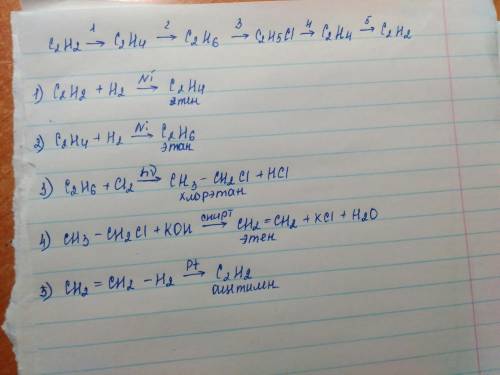 1 2 3 4 5
C2H2 → C2H4 → C2H6 → C2H5Cl → C2H4 → C2H2
1) C2H2 + H2 →Ni C2H4
этен
2) C2H4 + H2 →Ni C2H6
этан
3) C2H6 + Cl2 →hν CH3 – CH2Cl + HCl
хлорэтан
4) CH3 – CH2Cl + KOH →спирт CH2 = CH2 + KCl + H2O
этен
5) CH2 = CH2 – H2 →Pt C2H2
ацетилен